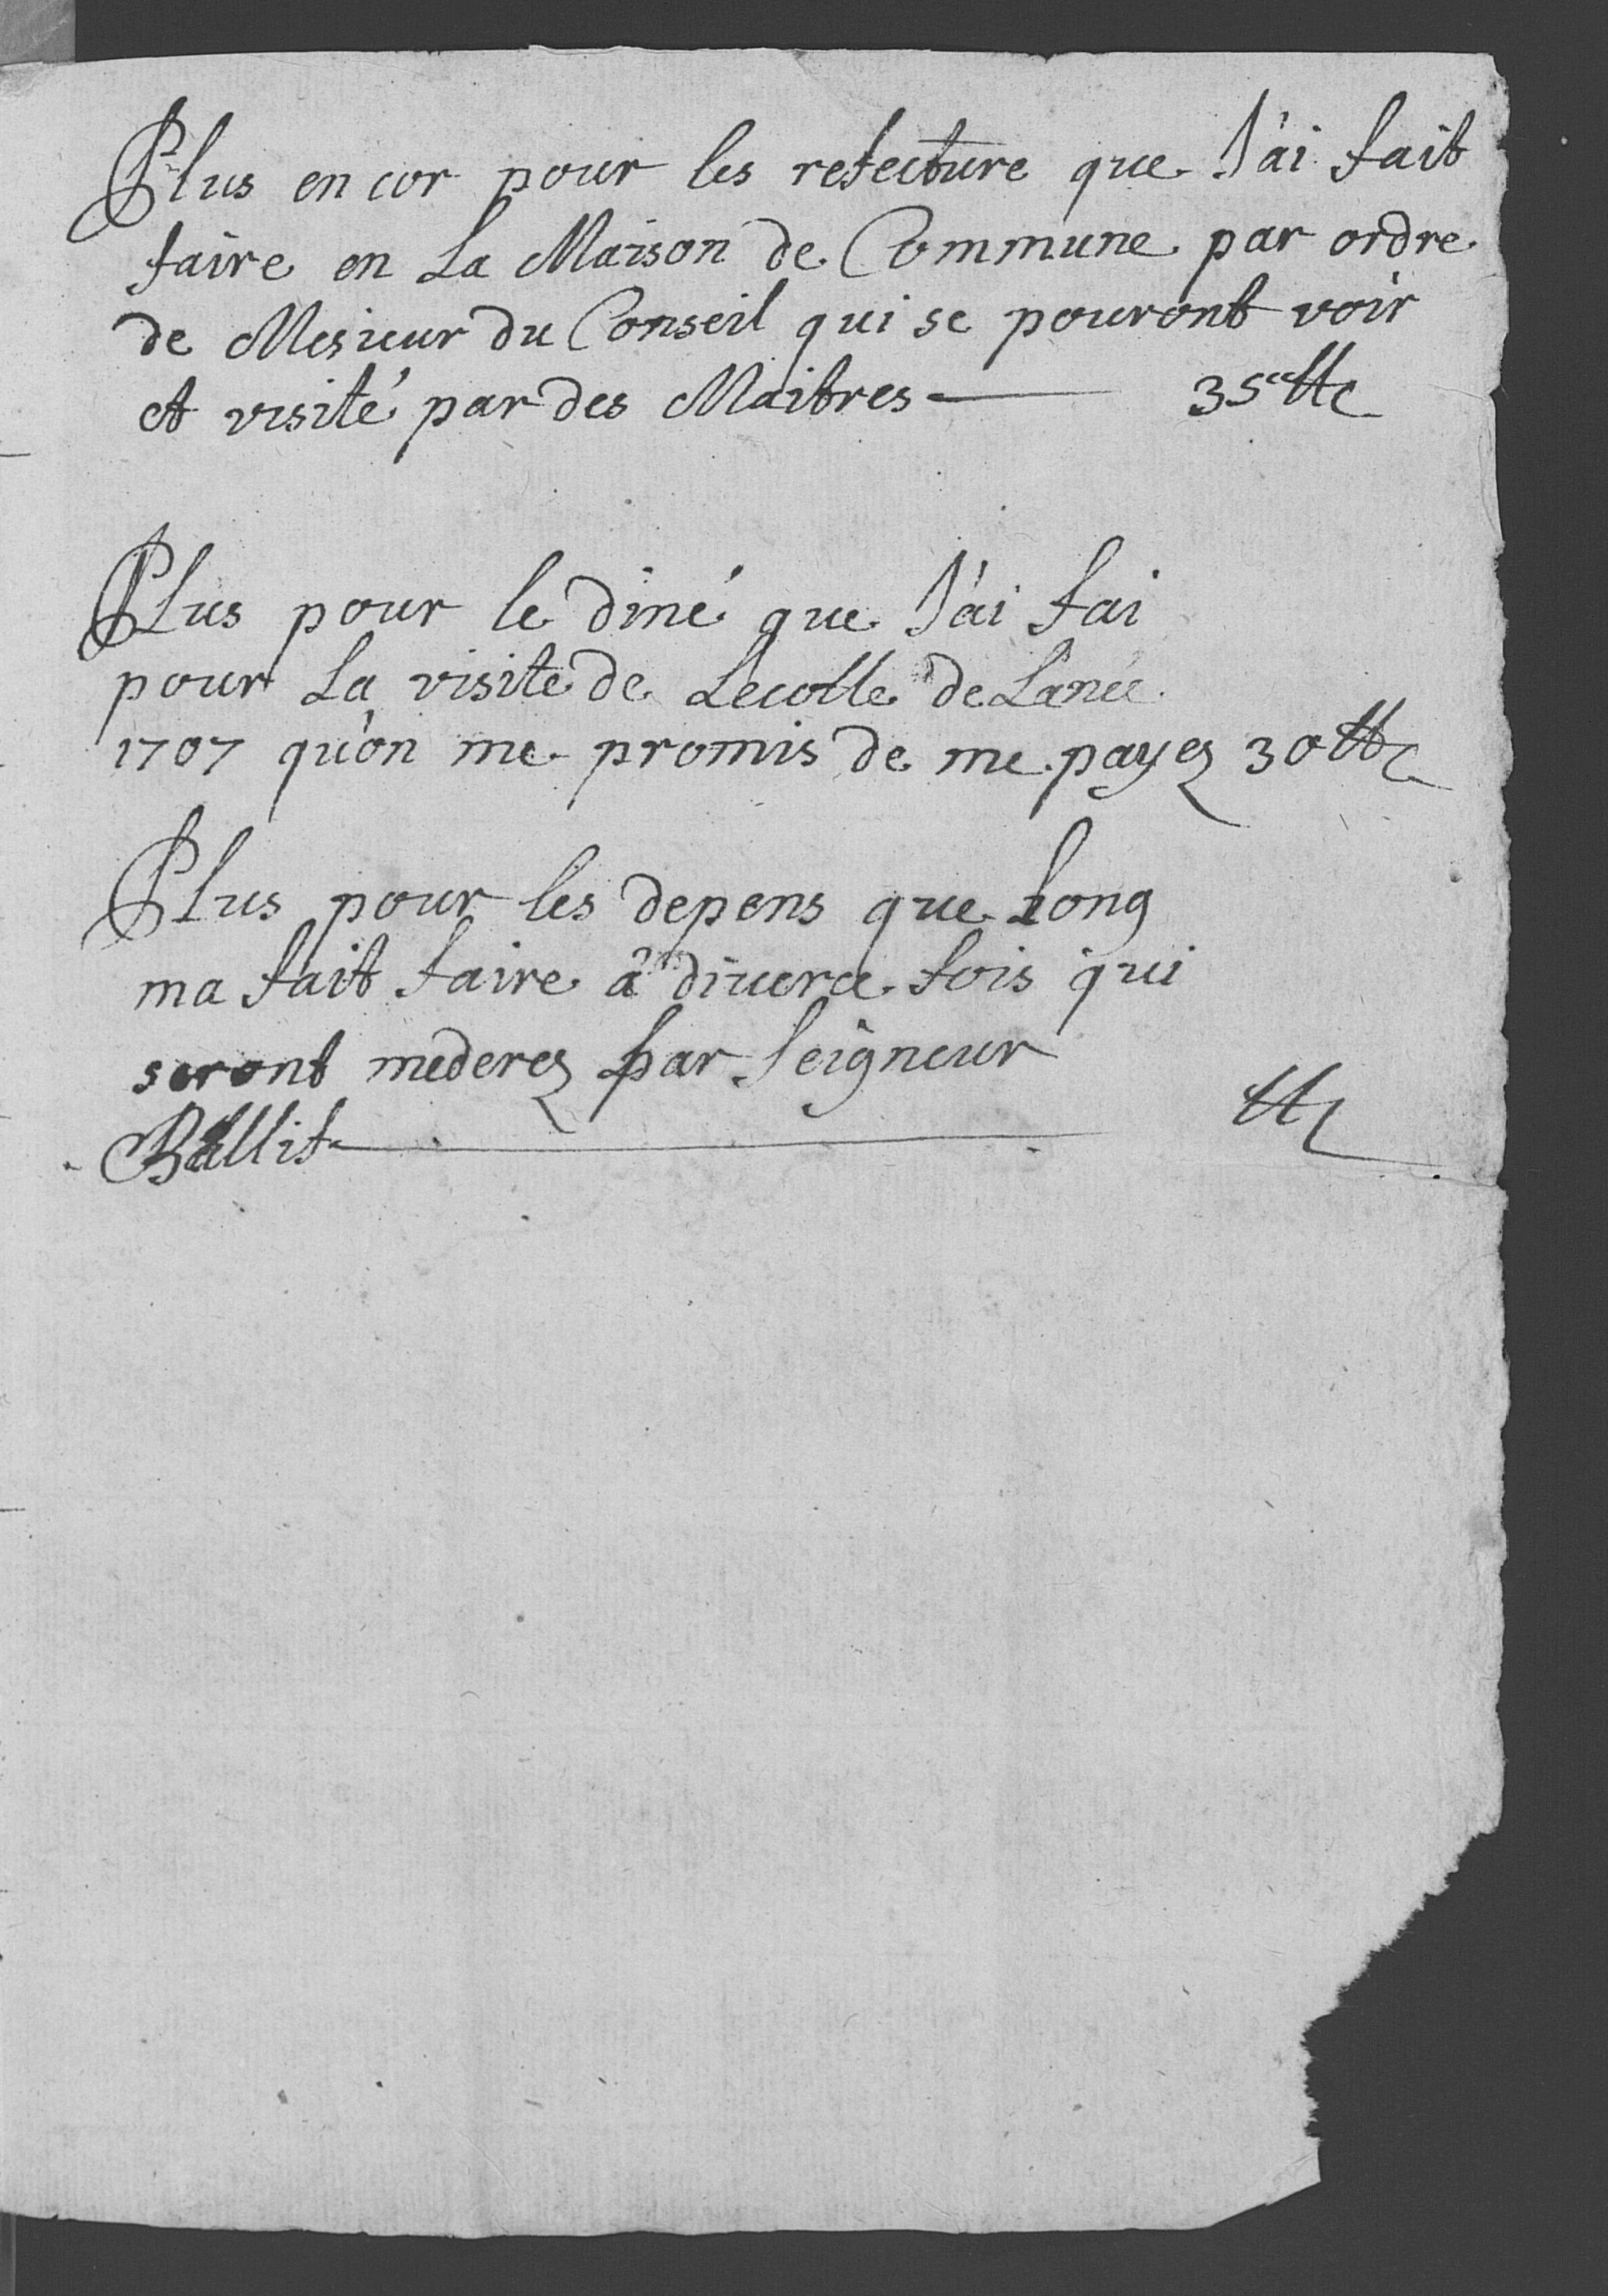 Plus en cor pour les refecture que J'ai fait
faire en La Maison de Commune par ordre
de Mesieur du Conseil qui se pouront voir
et visité par des Maitres 35 ₶
Plus pour le diné que J'ai fai
pour La visite de Lecolle de Lanée
1707 qu'on me promis de me payez 30 ₶
Plus pour les depens que Long
ma fait faire â diverce fois qui
seront mederez par Seigneur
Ballif ₶